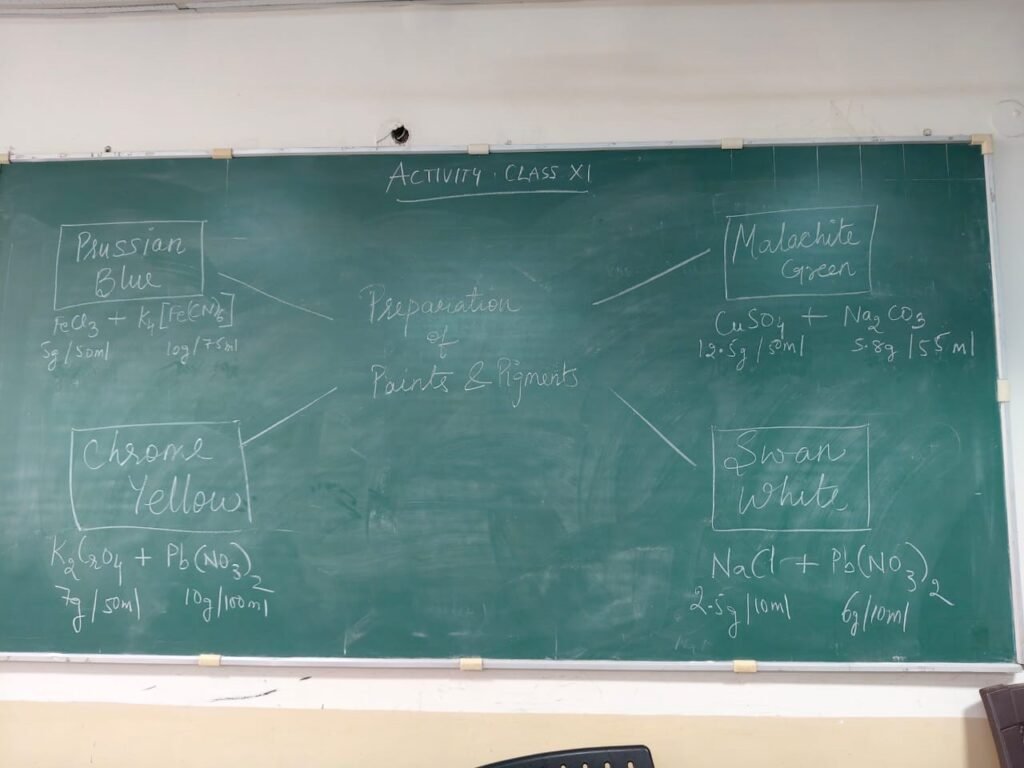 ACTIVITY. CLASS XI
Prussian
Blue
FeCl3 + K4[Fe(CN)6]
5g/50ml 10g/75ml
Preparation
of
Paints & Pigments
Malachite
Green
CuSO4 + Na2CO3
12.5g/50ml 5.8g/55ml
Chrome
Yellow
K2CrO4 + Pb(NO3)2
7g/50ml 10g/100ml
Swan
White
NaCl + Pb(NO3)2
2.5g/10ml 6g/10ml